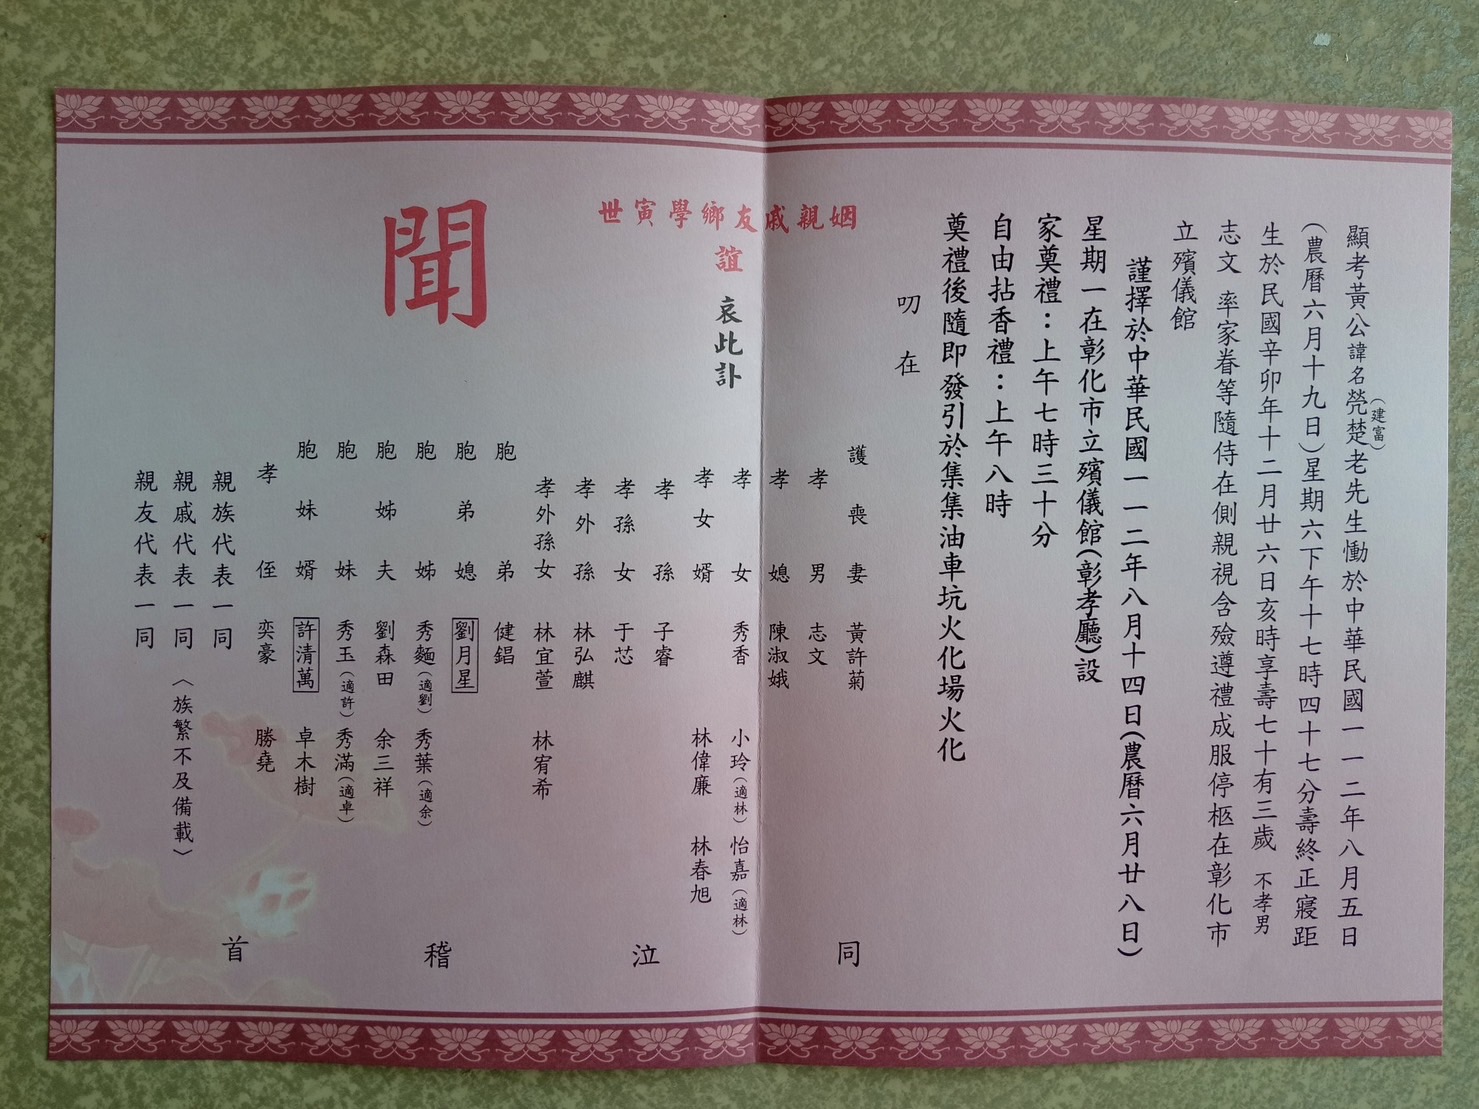 顯考黃公諱名甇楚老先生慟於中華民國一一二年八月五日
(建富)
(農曆六月十九日)星期六下午十七時四十七分壽終正寢距
生於民國辛卯年十二月廿六日亥時享壽七十有三歲 不孝男
志文 率家眷等隨侍在側親視含殮遵禮成服停柩在彰化市
立殯儀館
謹擇於中華民國一一二年八月十四日(農曆六月廿八日)
星期一在彰化市立殯儀館(彰孝廳)設
家奠禮：上午七時三十分
自由拈香禮：上午八時
奠禮後隨即發引於集集油車坑火化場火化
叨在
姻親戚友鄉學寅世
誼 哀此訃
聞
護喪妻 黃許菊
孝男 志文
孝媳 陳淑娥
孝女 秀香 小玲(適林) 怡嘉(適林)
孝女婿 林偉廉 林春旭
孝孫 子睿
孝孫女 于芯
孝外孫 林弘麒
孝外孫女 林宜萱 林宥希
胞弟 健錩
胞弟媳 劉月星
胞姊 秀麵(適劉) 秀葉(適余)
胞姊夫 劉森田 余三祥
胞妹 秀玉(適許) 秀滿(適卓)
胞妹婿 許清萬 卓木樹
孝侄 奕豪 勝堯
親族代表一同
親戚代表一同 〈族繁不及備載〉
親友代表一同
同泣稽首